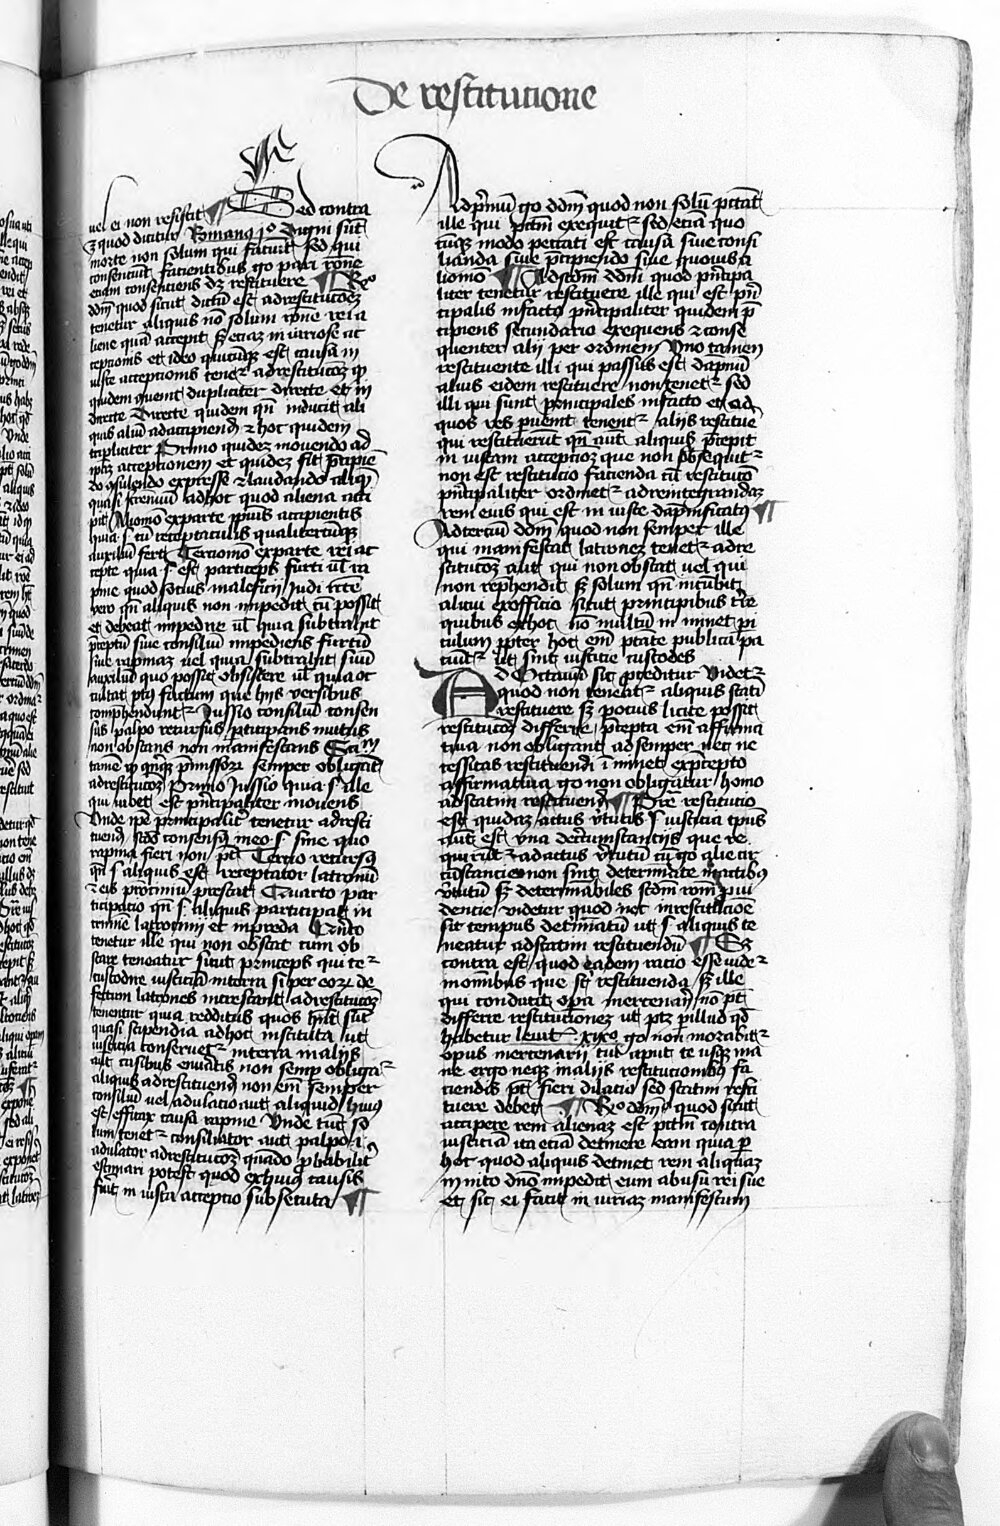 De restitutione
vel ei non resistit ¶ Sed contra
ꝫ quod dicitur Romanoꝝ jº Digni sūt
morte non solum qui faciūt Sed qui
consenciūt facientibus go pari rōne
eciam consenciens dꝫ restituere ¶ Rº
dōm quod sicut dictū est ad restitucōeꝫ
tenetur aliquis nō solum rōne rei a
liene quā accepit sꝫ eciaꝫ iniuriose ac
cepcionis et ideo quicūqꝫ est causa in
iuste accepcionis tenetᷣ ad restitucōeꝫ qᷓ
quidem quenit dupliciter directe et in
directe Directe quidem qn̄ inducit ali
quis aliū ad accipiendū ⁊ hoc quidem
tripliciter Primo quidem mouendo ad
ip̄aꝫ accepcionem et quidem fit p̄cipiē
do ꝯsulendo expresse ⁊ laudando aliqᷓ
quasi strenuū ad hoc quod aliena acci
pit Aliomō ex parte ip̄ius accipientis
quia s cū receptat uel qualitercūqꝫ
auxiliū fert Terciomō ex parte rei ac
cepte quia s est particeps furti ul̄ ra
pine quod socius maleficij Indirecte
vero qn̄ aliquis non impedit cū possit
et debeat impedire ul̄ quia subtrahit
p̄ceptū siue consiliū impediens furtū
siue rapinaꝫ uel quia subtrahit suū
auxiliū quo possit obsistere ul̄ quia oc
cultat post factum que hijs versibus
comprehendunt᷑ Jussio consiliū consen
sus palpo recursus p̄ticipans mutus
non obstans non manifestans Sciᵐ
tamē qᷓ quīqꝫ p̄missoꝝ semper obligāt
ad restitucōeꝫ Primo Jussio quia s ille
qui iubet est p̄ncipaliter mouens
Vnde ip̄e principalit᷑ tenetur ad resti
tuendū Scd̄o consensus in eo s sine quo
rapina fieri non pōt Tercio recursus
qn̄ s aliquis est receptator latronū
⁊ eis prociniū prestat Quarto par
ticipacio qn̄ s aliquis participat in
crimīe latrocinij et in preda Quīto
tenetur ille qui non obstat cum ob
stare teneatur sicut princeps qui te᷑
custodire iusticiā in terra si per eoꝝ de
fectum latrones increscant ad restitucōeꝫ
tenentur quia redditus quos hn̄t sūt
quasi stipendia ad hoc instituta ut
iusticia conseruet᷑ in terra In alijs
aut casibus enūatis non semꝑ obliga᷑
aliquis ad restituendū non em̄ semper
consiliū vel adulacio aut aliquid huiꝰ
est efficax causa rapine Vnde tūc so
lum tenet᷑ consiliator aut palpo i
adulator ad restitucōeꝫ quādo ꝓbabilit᷑
estimari potest quod ex huiꝰ causis
fuit iniusta accepcio subsecuta ¶
Ad p̄mū go dōm quod non solū peccat
ille qui pctm̄ exequit᷑ Sed eciā quo
cūqꝫ modo peccati est causa siue consi
liando siue p̄cipiendo siue quouis a
liomō ¶ Ad scd̄m dōm quod p̄ncipa
liter tenetur restituere ille qui est prī
cipalis in facto p̄ncipaliter quidem p̄
cipiens secundario exequens ⁊ conse
quenter alij per ordinem Vno tamen
restituente illi qui passus est dāpnū
alius eidem restituere non tenet᷑ sed
illi qui sunt principales in facto et ad
quos res ꝑuenit tenent᷑ alijs restitue
qui restituerūt qn̄ aut aliquis p̄cepit
iniustam accepcioꝫ que non obsequit᷑
non est restitucio facienda cū restitucō
p̄ncipaliter ordinet᷑ ad reintegrandaꝫ
rem eius qui est iniuste dāpnificatus ¶
Ad terciū dōm quod non semper ille
qui manifestat lacionem tenet᷑ ad re
stitucōeꝫ aut qui non obstat vel qui
non rep̄hendit sꝫ solum qn̄ incūbit
alicui ex officio sicut principibus t̄re
quibus ex hoc nō multū inminet pi
culum ꝓpter hoc em̄ ptāte publica pa
ciūt᷑ ut sint iusticie custodes
Ad Octauū sic proceditur Videt᷑
quod non teneat᷑ aliquis statī
restituere sꝫ pocius licite possit
restitucōeꝫ differre p̄cepta em̄ affirma
tiua non obligant ad semper nec ne
cessitas restituendi iminet ex p̄cepto
affirmatiua go non obligatur homo
ad statim restituendū ¶ Pret̄ restitucio
est quidaꝫ actus v̄tutis s iusticia tpus
aut est vna de circumstancijs que re
quirūt᷑ ad actus v̄tutū cū go alie cir
cūstancie non sint determinate in actibus
v̄tutū sꝫ determinabiles scdm̄ rōnem pru
dencie videtur quod nec in restitucōe
sit tempus determīatū ut s aliquis te
neatur ad statim restituendū ¶ Sꝫ
contra est quod eadem racio esse vide᷑
in omnibus que st̄ restituenda sꝫ ille
qui conducit opa mercenarij nō pōt
differre restitucionem ut ptꝫ per illud qd̄
habetur leuit͛ xixº go non morabit᷑
opus mercenarij tui apud te usqꝫ ma
ne ergo neqꝫ in alijs restitucionibus fa
ciendis pōt fieri dilacio sed statim resti
tuere debet ¶ Rº dōm quod sicut
accipere rem alienaꝫ est pctm̄ contra
iusticiā ita eciā detinere eam quia per
hoc quod aliquis detinet rem alienaꝫ
inuito dn̄o impedit eum ab usu rei sue
et sic ei facit iniuriaꝫ manifestum